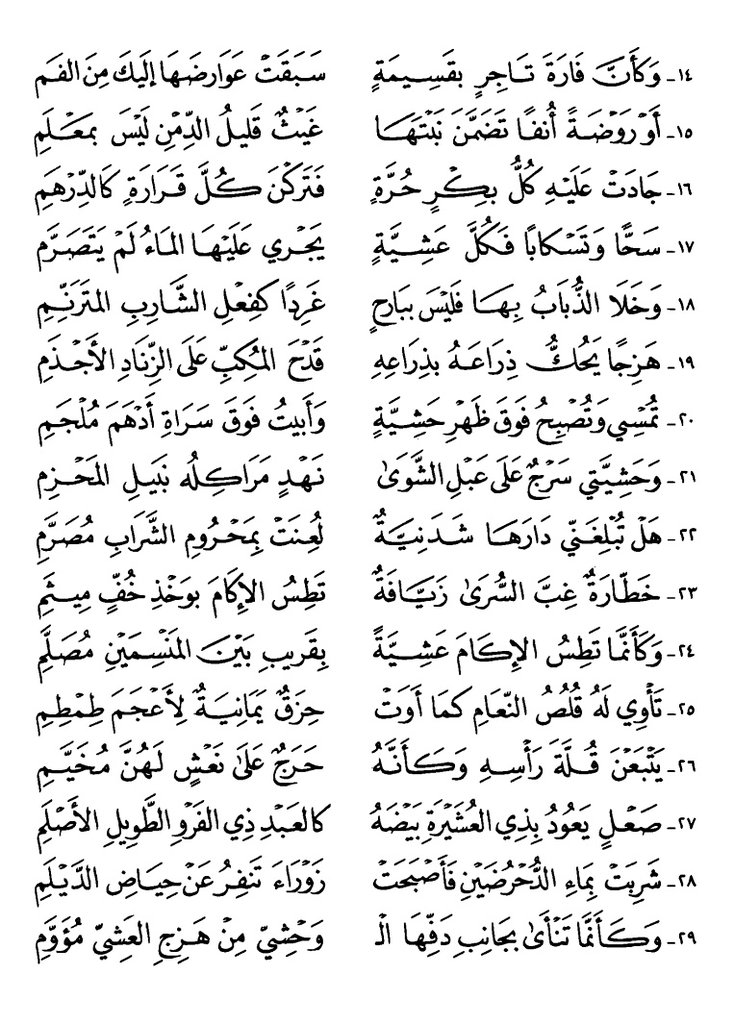 ١٤- وَكَأَنَّ فَارَةَ تَاجِرٍ بِقَسِيمَةٍ سَبَقَتْ عَوَارِضَهَا إِلَيْكَ مِنَ الفَمِ
١٥- أَوْ رَوْضَةً أُنُفًا تَضَمَّنَ نَبْتَهَا غَيْثٌ قَلِيلُ الدِّمْنِ لَيْسَ بِمَعْلَمِ
١٦- جَادَتْ عَلَيْهِ كُلُّ بِكْرٍ حُرَّةٍ فَتَرَكْنَ كُلَّ قَرَارَةٍ كَالدِّرْهَمِ
١٧- سَحًّا وَتَسْكَابًا فَكُلَّ عَشِيَّةٍ يَجْرِي عَلَيْهَا المَاءُ لَمْ يَتَصَرَّمِ
١٨- وَخَلَا الذُّبَابُ بِهَا فَلَيْسَ بِبَارِحٍ غَرِدًا كَفِعْلِ الشَّارِبِ المُتَرَنِّمِ
١٩- هَزِجًا يَحُكُّ ذِرَاعَهُ بِذِرَاعِهِ قَدْحَ المُكِبِّ عَلَى الزِّنَادِ الأَجْذَمِ
٢٠- تُمْسِي وَتُصْبِحُ فَوْقَ ظَهْرِ حَشِيَّةٍ وَأَبِيتُ فَوْقَ سَرَاةِ أَدْهَمَ مُلْجَمِ
٢١- وَحَشِيَّتِي سَرْجٌ عَلَى عَبْلِ الشَّوَىٰ نَهْدٍ مَرَاكِلُهُ نَبِيلِ المَحْزِمِ
٢٢- هَلْ تُبْلِغَنِّي دَارَهَا شَدَنِيَّةٌ لُعِنَتْ بِمَحْرُومِ الشَّرَابِ مُصَرَّمِ
٢٣- خَطَّارَةٌ غِبَّ السُّرَىٰ زَيَّافَةٌ تَطِسُ الإِكَامَ بِوَخْذِ خُفٍّ مِيثَمِ
٢٤- وَكَأَنَّمَا تَطِسُ الإِكَامَ عَشِيَّةً بِقَرِيبِ بَيْنَ المَنْسِمَيْنِ مُصَلَّمِ
٢٥- تَأْوِي لَهُ قُلُصُ النَّعَامِ كَمَا أَوَتْ حِزَقٌ يَمَانِيَةٌ لِأَعْجَمَ طِمْطِمِ
٢٦- يَتْبَعْنَ قُلَّةَ رَأْسِهِ وَكَأَنَّهُ حَرَجٌ عَلَىٰ نَعْشٍ لَهُنَّ مُخَيَّمِ
٢٧- صَعْلٍ يَعُودُ بِذِي العُشَيْرَةِ بَيْضَهُ كالعَبْدِ ذِي الفَرْوِ الطَّوِيلِ الأَصْلَمِ
٢٨- شَرِبَتْ بِمَاءِ الدُّحْرُضَيْنِ فَأَصْبَحَتْ زَوْرَاءَ تَنْفِرُ عَنْ حِيَاضِ الدَّيْلَمِ
٢٩- وَكَأَنَّمَا تَنْأَىٰ بِجَانِبِ دَفِّهَا الْـ وَحْشِيِّ مِنْ هَزِجِ العَشِيِّ مُؤَوَّمِ